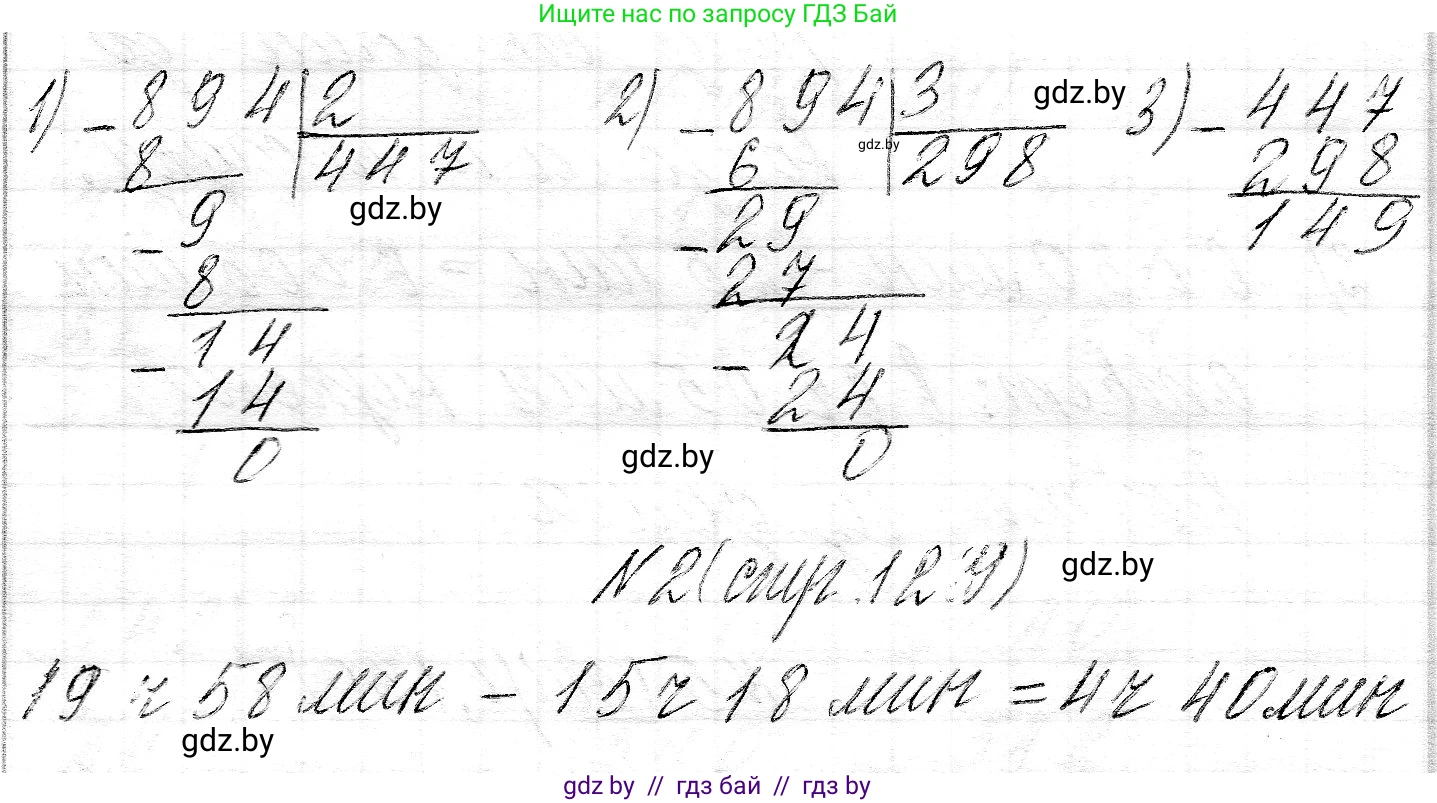 Ищите нас по запросу ГДЗ Бай
1) - 894 | 2   2) - 894 | 3   gdz.by   3) - 447
8   447   6   gdz.by   298   298
- 9   gdz.by   - 29   149
8   27
- 14   - 24
14   24
0   gdz.by   0
N 2 (стр. 124)   gdz.by
19 ч 58 мин - 15 ч 18 мин = 4 ч 40 мин
gdz.by
gdz by // гдз бай // гдз by